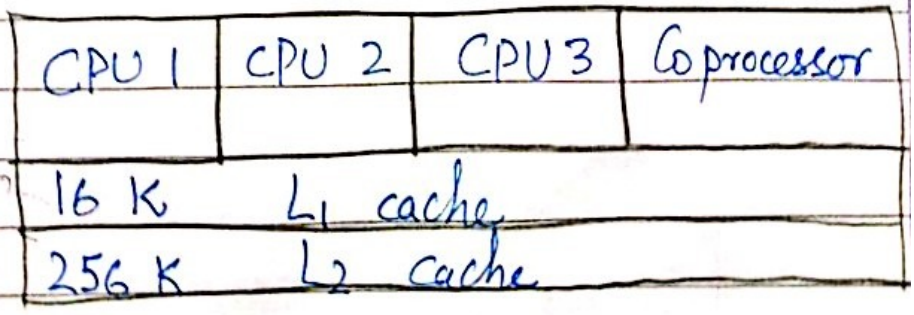 CPU 1 CPU 2 CPU 3 Coprocessor
16 K L1 cache
256 K L2 cache